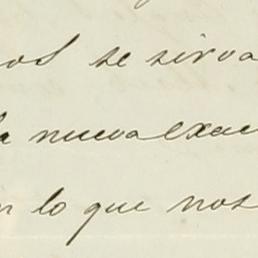 os se sirva
la nueva exac
n lo que nos